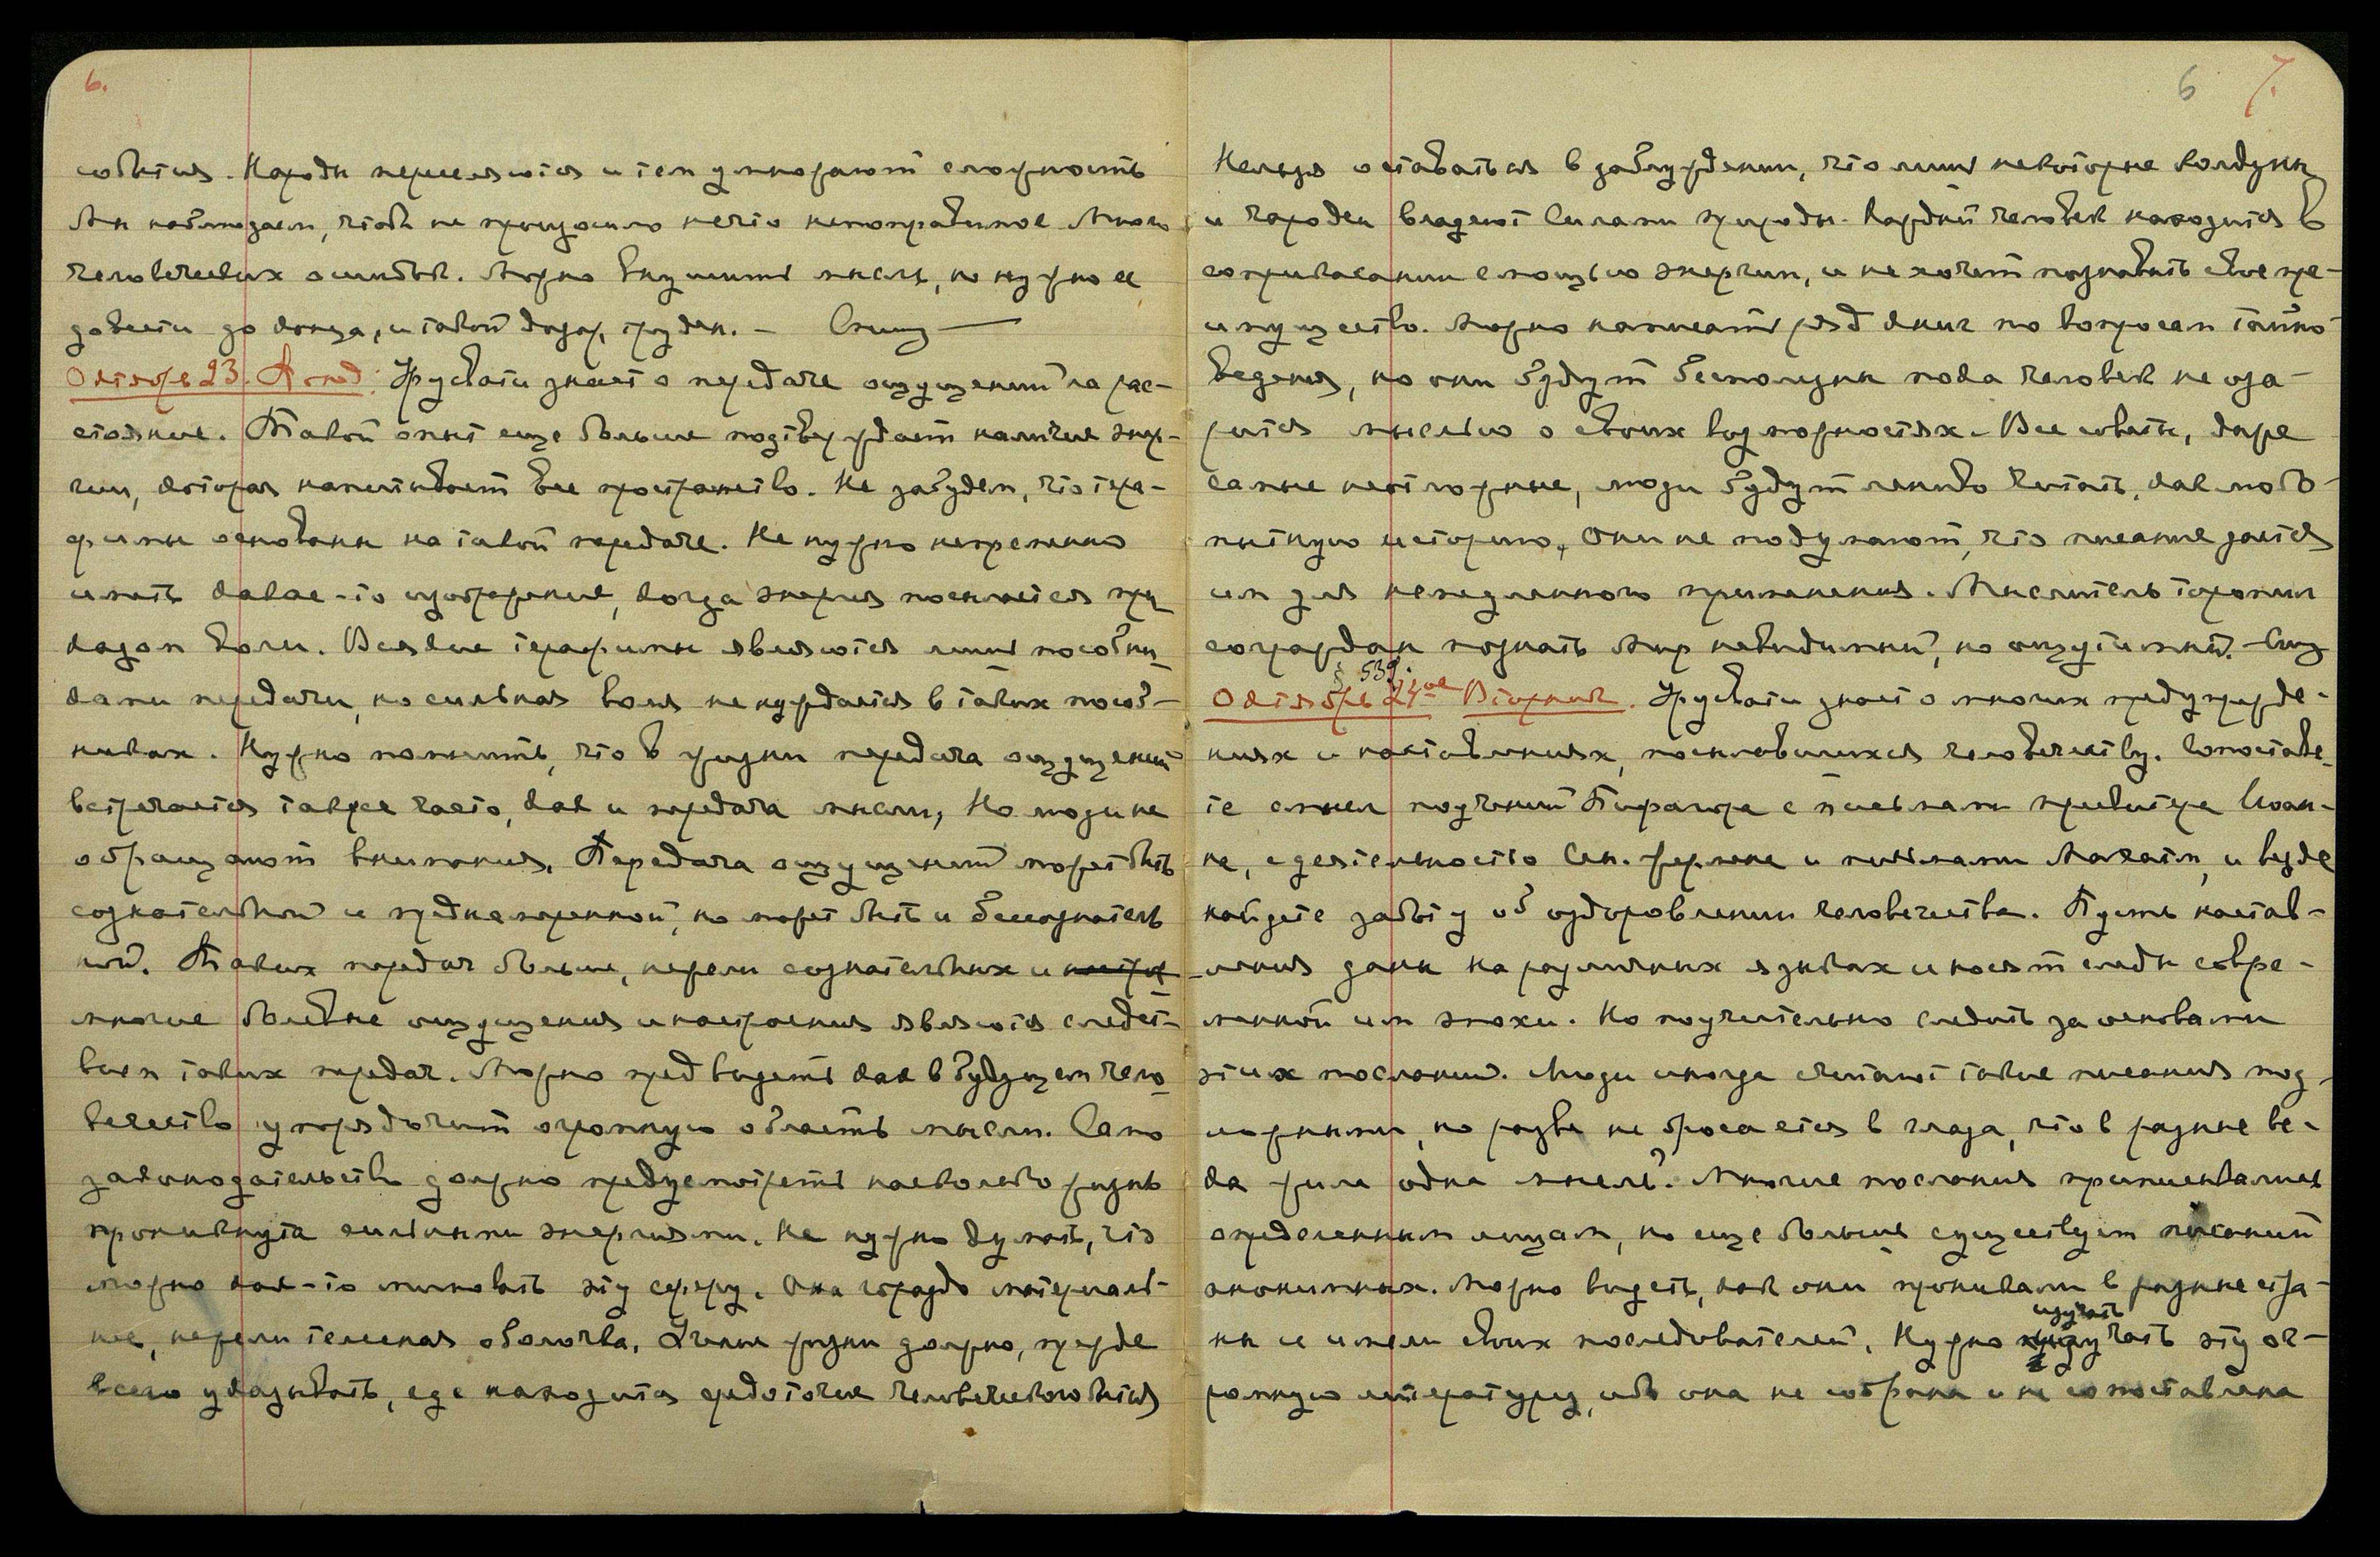 6.
события. Народы переселяются и тем умножают сложность
Мы наблюдаем, чтобы не произошло нечто непоправимое. Много
человеческих ошибок. Можно внушить мысль, но нужно ее
довести до конца, и такой дозор труден. —
Октябрь 23. Понед: Урусвати знает о передаче ощущений на рас-
стояние. Такой опыт еще больше подтверждает наличие энер-
гии, которая напитывает все пространство. Не забудем, что тера-
фимы основаны на такой передаче. Не нужно непременно
иметь какое-то изображение, когда энергия посылается при
казом воли. Всякие терафимы являются лишь пособни
ками передачи, но сильная воля не нуждается в таких пособ-
никах. Нужно помнить, что в жизни передача ощущений
встречается также часто, как и передача мысли, Но люди не
обращают внимания. Передача ощущений может быть
сознательной и преднамеренной, но может быть и бессознатель
ной. Таких передач больше, нежели сознательных и
многие болевые ощущения и настроения являются следст-
вием таких передач. Можно предвидеть как в будущем чело
вечество упорядочит огромную область мысли. Само
законодательство должно предусмотреть насколько жизнь
проникнута сильными энергиями. Не нужно думать, что
можно как-то миновать эту сферу. Она гораздо материаль-
нее, нежели телесная оболочка. Учение жизни должно, прежде
всего указывать, где находится средоточие человеческого бытия
6 7.
Нельзя оставаться в заблуждении, что лишь некоторые колдуны
и чародеи владеют силами природы. Каждый человек находится в
соприкасании с мощью энергии, и не хочет познавать свое пре-
имущество. Можно написать ряд книг по вопросам тайно
ведения, но они будут бесполезны пока человек не оза-
рится мыслью о своих возможностях. Все советы, даже
самые неотложные, люди будут лениво читать, как любо-
пытную историю. Они не подумают, что писание дается
им для немедленного применения. Мыслитель торопил
сограждан познать Мир невидимый, но ощутимый. —
§ 539.
Октябрь 24ое Вторник. Урусвати знает о многих предупрежде-
ниях и наставлениях, посылавшихся человечеству. Сопоставь
те смысл поучений Пифагора с письмами пресвитера Иоан-
на, с деятельностью Сен. Жермена и письмами Махатм, и везде
найдете заботу об оздоровлении человечества. Пусть настав-
ления даны на различных языках и носят следы совре-
менной им эпохи. Но поучительно следить за основами
этих посланий. Люди иногда считают такие писания под-
ложными, но разве не бросается в глаза, что в разные ве-
ка жила одна мысль? Многие послания приписывались
определенным лицам, но еще больше существует писаний
анонимных. Можно видеть, как они проникали в разные стра-
изучать
ны и имели своих последователей. Нужно эту ог-
ромную литературу, ибо она не собрана и не сопоставлена